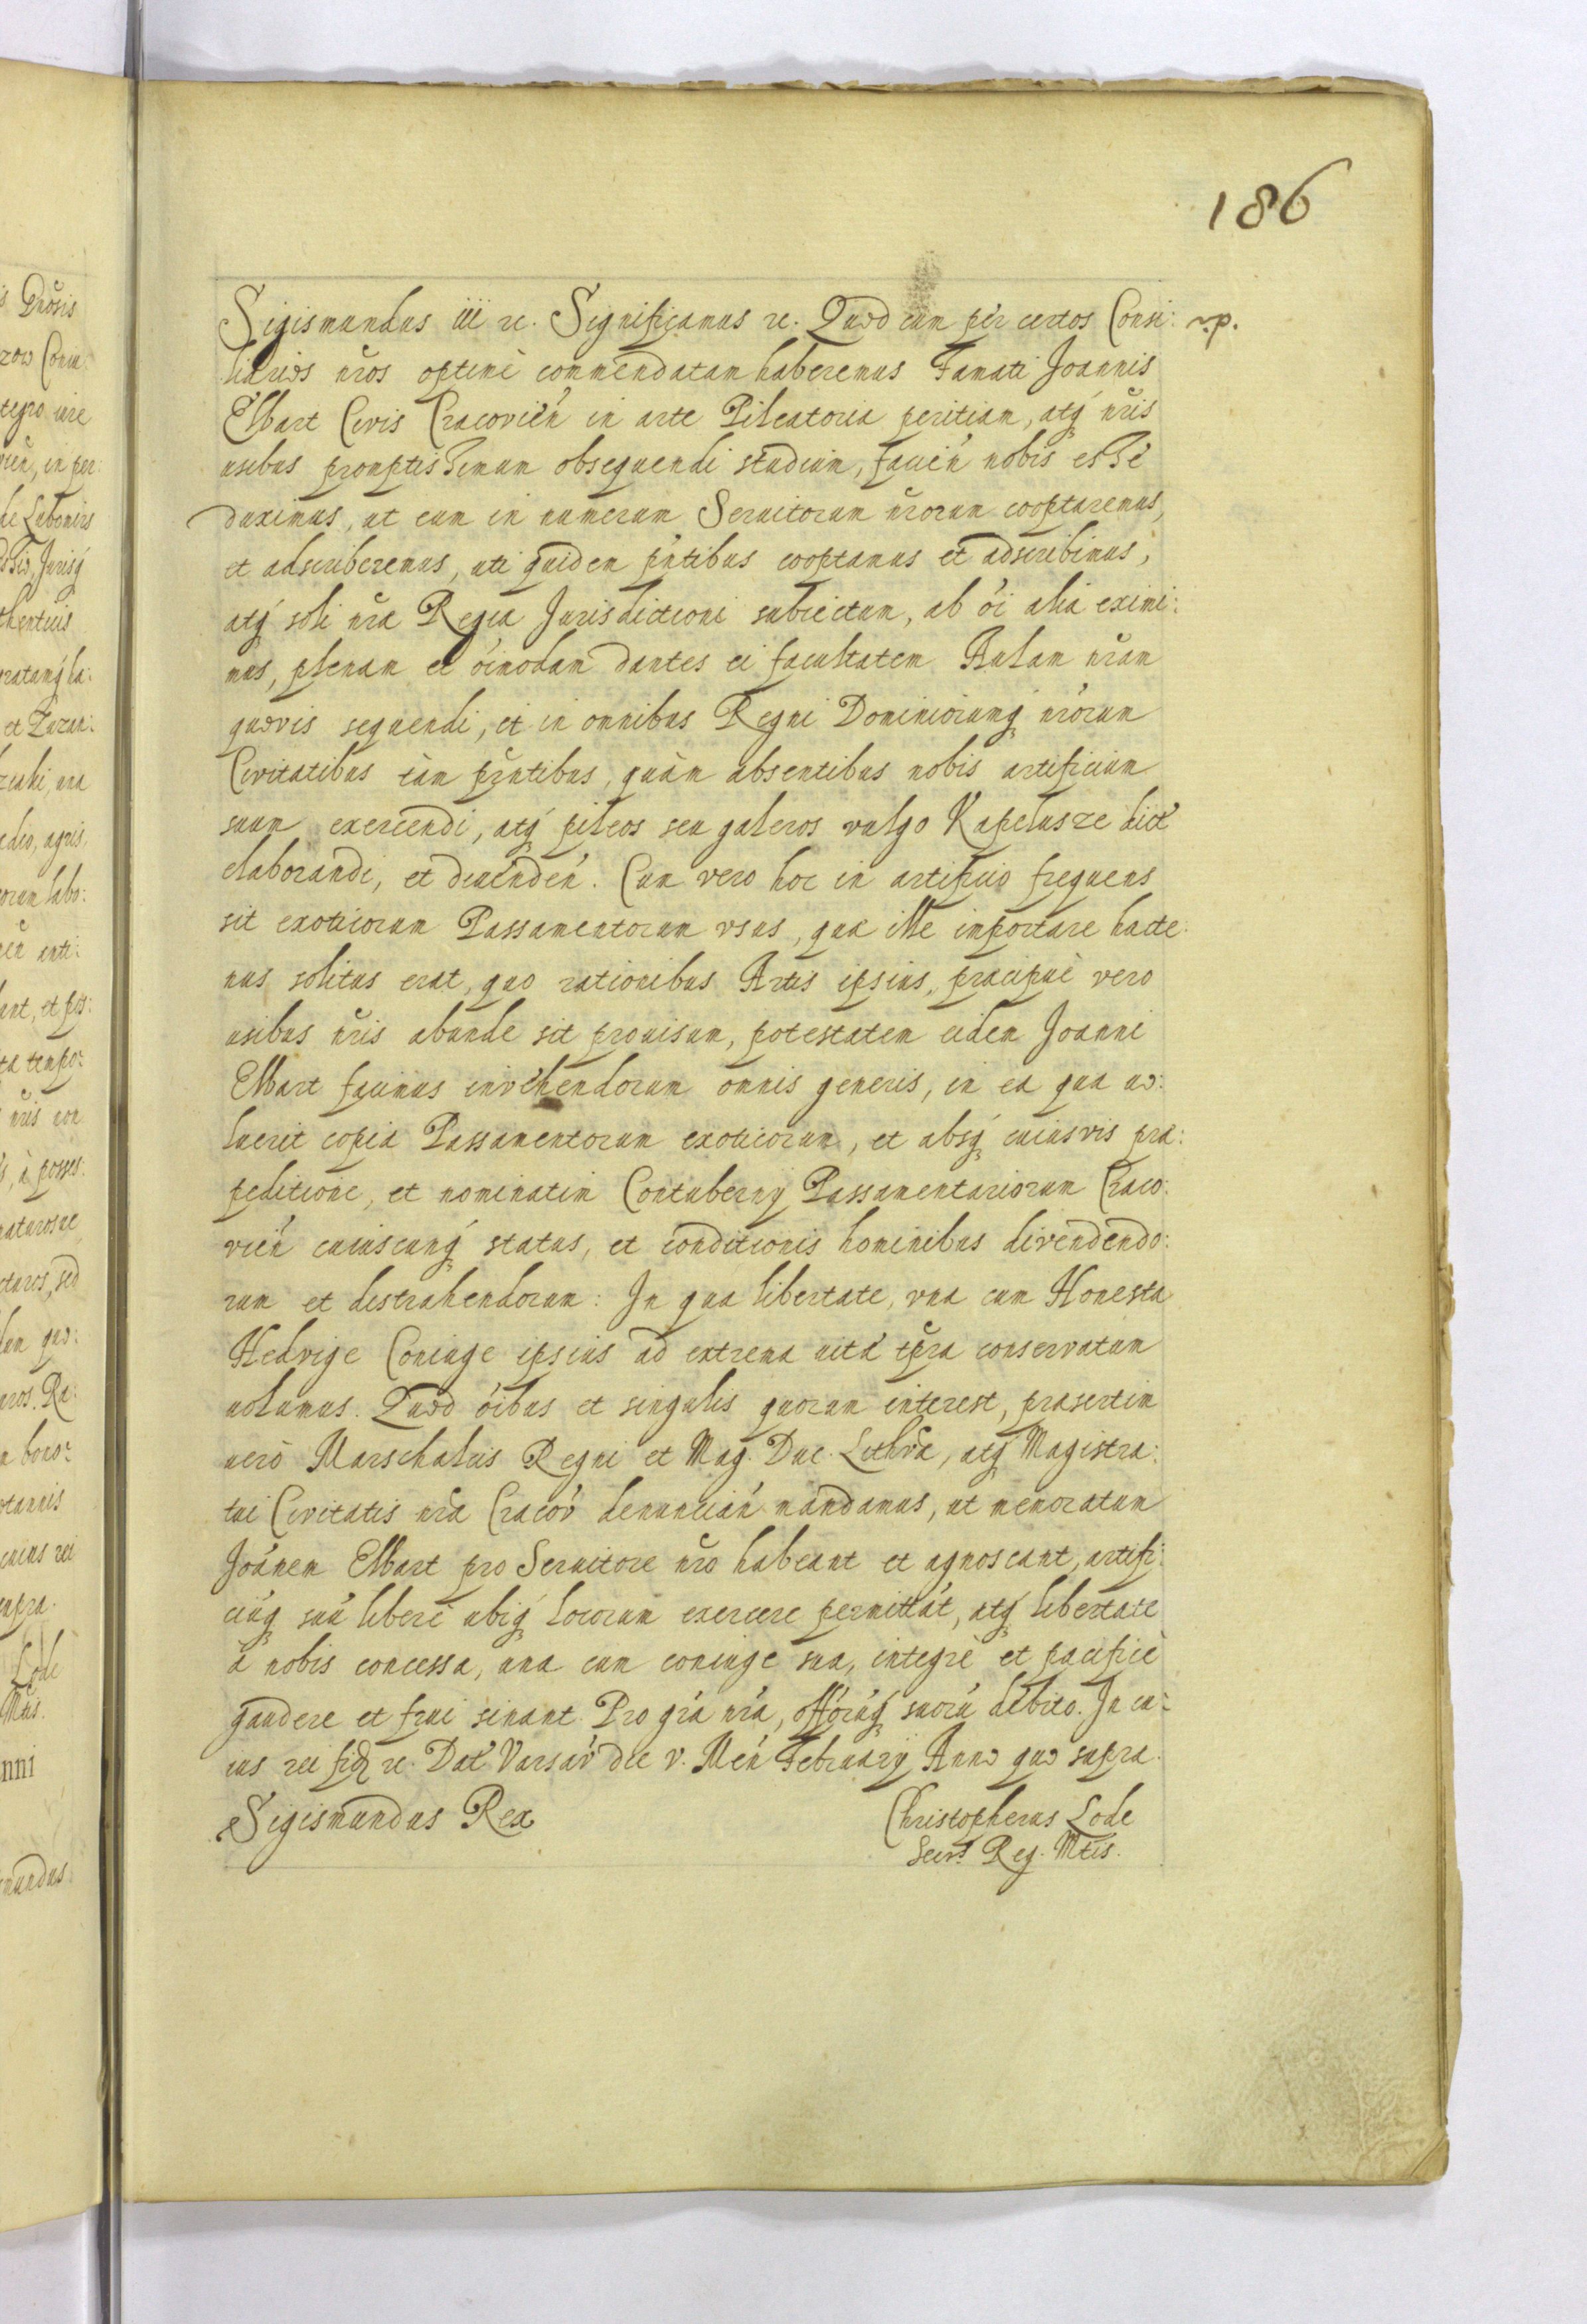 186
Sigismundus iii rc. Significamus rc. Quod cum per certos Consi: r.p.
liarios nr̃os optimè commendatam haberemus Famati Joannis
Elbart Civis Cracovień in arte Pileatoria peritiam, atq́ nr̃is
usibus promptissimum obsequendi studium, facień nobis esse
duximus, ut eum in numerum Seruitorum nr̃orum cooptaremus,
et adscriberemus, uti quidem pńtibus cooptamus et adscribimus,
atq́ soli nr̃a Regia Jurisdictioni subiectum, ab ói alia eximi:
mus, plenam et óimodam dantes ei facultatem Aulam nr̃am
quovis sequendi, et in omnibus Regni Dominiorumq́ nr̃orum
Civitatibus tàm prñtibus, quàm absentibus nobis artificium
suum exercendi, atq́ pileos seu galeros vulgo Kapelusze dict́
elaborandi, et diuendeń. Cum vero hoc in artificio frequens
sit exoticorum Passamentorum vsus, qua ille importare hacte:
nus solitus erat, quo rationibus Artis ipsius, pracipuè vero
usibus nr̃is abunde sit prouisum, potestatem eidem Joanni
Elbart facimus invehendorum omnis generis, in ea qua uo:
luerit copia Passamentorum exoticorum, et absq́ cuiusvis pra:
peditione, et nominatim Contubernÿ Passamentariorum Craco:
vień cuiuscunq́ status, et conditionis hominibus divendendo:
rum et distrahendorum: In qua libertate, vna cum Honesta
Hedvige Coniuge ipsius ad extrema uita tp̃ra conservatum
uolumus. Quod óibus et singulis quorum interest, prasertim
uerò Marschalcis Regni et Mag. Duc. Lithv̄a, atq́ Magistra:
tui Civitatis nr̃a Cracov́ denunciań mandamus, ut memoratum
Joánem Elbart pro Seruitore nr̃o habeant et agnoscant, artifi:
ciúq́ suú liberè ubiq́ locorum exercere permittát, atq́ libertate
à nobis concessa, una cum coniuge sua, integrè et pacificè
gaudere et frui sinant. Pro gŕa nŕa, offórúq́ suorú débito. In cu:
ius rei fiđ rc. Dat́ Varsav́ die v. Meń Februarÿ Anno quo supra.
Sigismundus Rex Christopherus Lode
Secrs̃ Reg. Mtis.